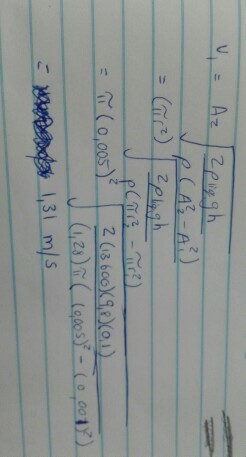 V₁ = A₂ √(2ρₕgh / ρ(A₂² − A₁²))
= (πr₂²) √(2ρₕgh / ρ(πr₂² − πr₁²))
= π(0,005)² √(2(13600)(9,8)(0,1) / (1,28)π((,005)² − (0,001)²))
= 131 m/s